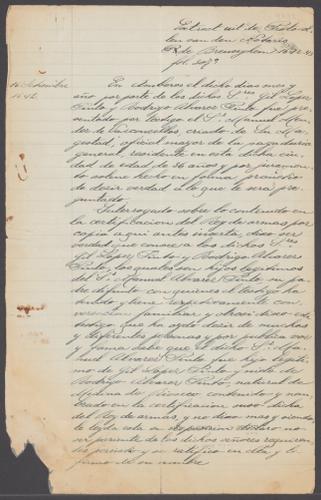 Extract uit de Protocollen van den Notaris
de Breuseghem 1642-43
fol 207
16 Setiembre
1642
En Amberes el dicho dias mes y
año por parte de los dichos Sres Gil Lopez
Pinto y Rodrigo Alvares Pinto fue pre-
sentado por testigo el Sr Manuel Men-
dez de Vasconcellos, criado de Su Ma-
gestad, oficial mayor de la pagaduria
general, residente en esta dicha ciu-
dad de edad de años y por juramento
solene hecho en forma prometio
de decir verdad a lo que le sera pre-
guntado.
Interrogado sobre lo contenido en
la certificacion del Rey de armas por
copia aqui antes inserta, dixo ser
verdad que conoce a los dichos Sres
Gil Lopez Pinto y Rodrigo Alvares
Pinto, los quales son hijos legitimos
del Sr Manuel Alvares Pinto su pa-
dre difunto con quienes el testigo ha
tenido y tiene respectivamente con-
versacion familiar y dixo este
testigo que ha oydo decir de muchas
y diferentes personas y por publica voz
y fama sabe que el dicho Sr Ma-
nuel Alvares Pinto fue hijo legiti-
mo de Gil Lopez Pinto y nieto de
Rodrigo Alvares Pinto, natural de
Medina de contenido y nom-
brado en la certificacion suso dicha
del Rey de armas, y no dixo mas y siendo
le leyda esta su deposicion declaro no
ser pariente de los dichos señores requiren-
tes y se ratifico en ella y lo
firmo de su nombre